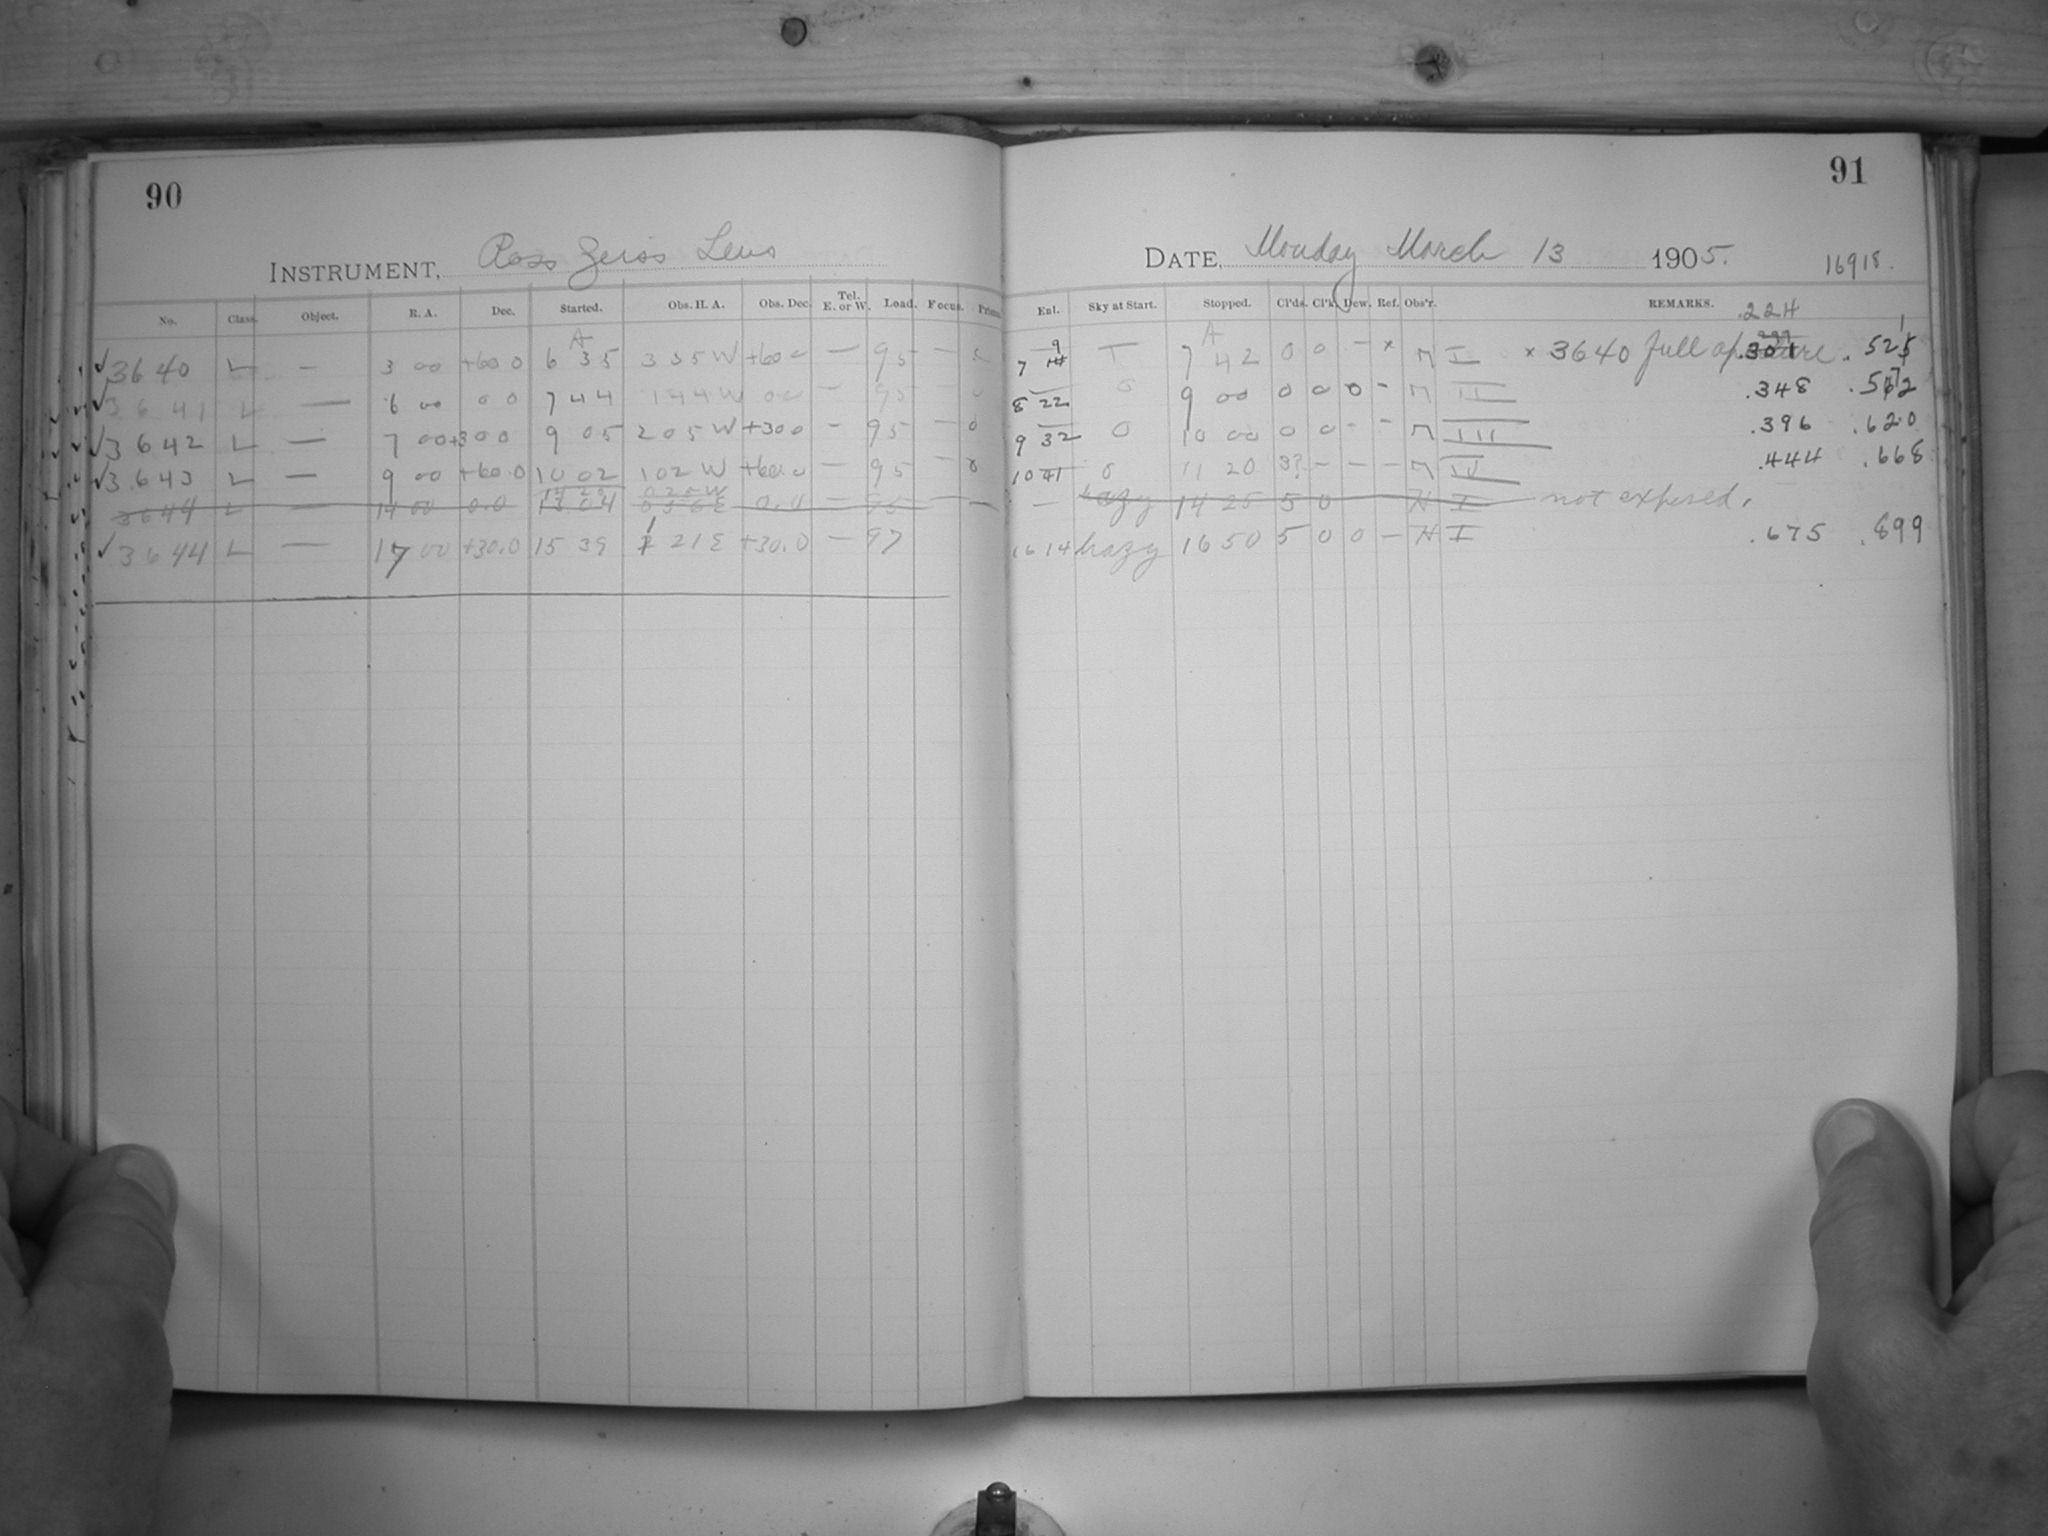 90
INSTRUMENT, Ross Zeiss Lens
No. Class. Object. R. A. Dec. Started. Obs. H. A. Obs. Dec. Tel. E. or W. Load. Focus.
✓ 3640 L — 3 00 +60 0 6 35 3 35 W +60 0 — 95 —
✓ 3641 L — 6 00 0 0 7 44 1 44 W 0 0 — 95
✓ 3642 L — 7 00 +30 0 9 05 2 05 W +30 0 — 95 — 0
✓ 3643 L — 9 00 +60.0 10 02 1 02 W +60.0 — 95 —
3644 L — 14 00 0.0 0.0 —
✓ 3644 L — 17 00 +30.0 15 39 1 21 E +30.0 — 97
91
DATE, Monday March 13 1905. 16918.
Ent. Sky at Start. Stopped. Cl'ds. Cl'k. Dew. Ref. Obs'r. REMARKS.
.224
7 9 — 7 42 0 0 — × I × 3640 full aperture .301 .525
8 22 0 9 00 0 0 0 - II .348 .572
9 32 0 10 00 0 0 - - III .396 .620
10 41 0 11 20 3? — — — IV .444 .668
— hazy 14 25 5 0 H I not exposed.
16 14 hazy 16 50 5 0 0 — H I .675 .899